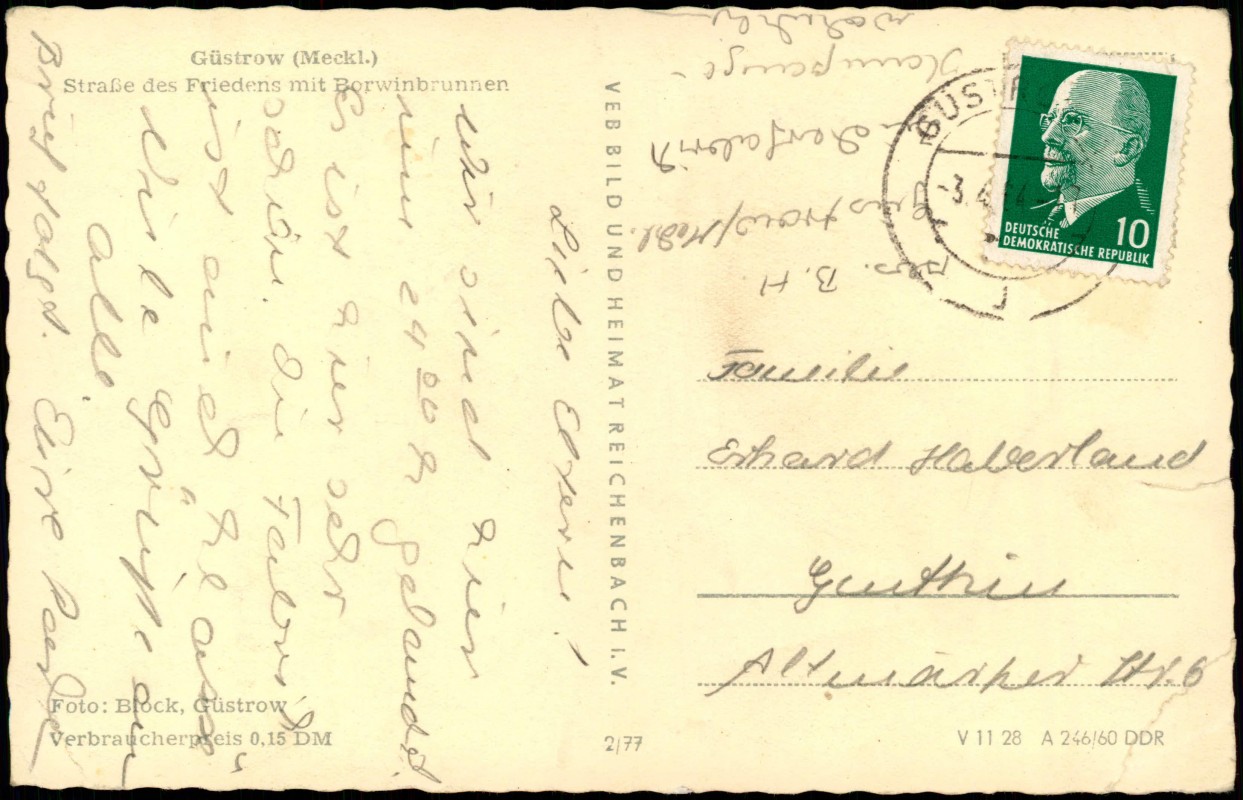 Güstrow (Meckl.)
Straße des Friedens mit Borwinbrunnen
Liebe Eltern!
Wir sind hier
nun 24⁰⁰ h gelandet.
Es ist hier sehr
schön. Die Fabrik
ist auch
Viele Grüße an
alle
Brief folgt. Eure
Foto: Block, Güstrow
Verbraucherpreis 0,15 DM
VEB BILD UND HEIMAT REICHENBACH I. V.
2/77
Abs. B. H.
Güstrow/Meckl.
Zuckerfabrik
Kampange-
GÜSTRO
3.4.64
DEUTSCHE
DEMOKRATISCHE REPUBLIK
10
Familie
Erhard Haberland
Genthin
Altmärker Str. 6
V 11 28 A 246/60 DDR